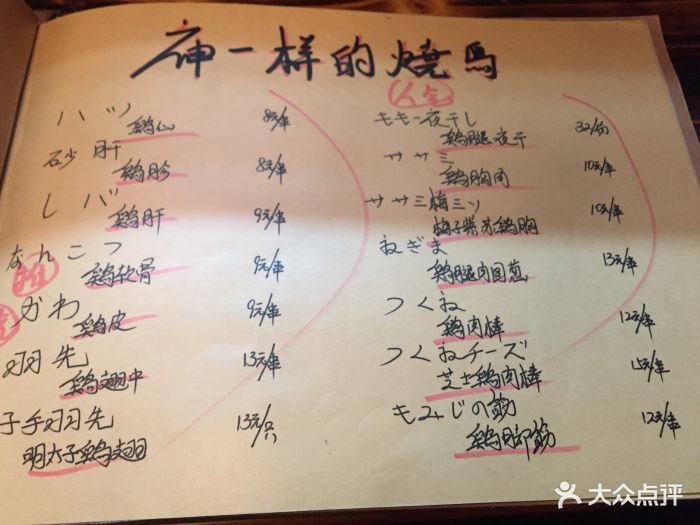 神一样的燒鳥
人气
ハツ
鸡心 8元/串
砂肝
鸡胗 8元/串
レバ
鸡肝 9元/串
なんこつ
鸡软骨 9元/串
推
かわ
鸡皮 9元/串
羽先
鸡翅中 13元/串
子手羽先
明太子鸡翅 13元/只
モモ一夜干し
鸡腿夜干 32/份
ササミ
鸡胸肉 10元/串
ササミ梅ミソ
梅子紫苏鸡胸 10元/串
ねぎま
鸡腿肉圆葱 13元/串
つくね
鸡肉棒 12元/串
つくねチーズ
芝士鸡肉棒 15元/串
もみじの筋
鸡脚筋 12元/串
大众点评